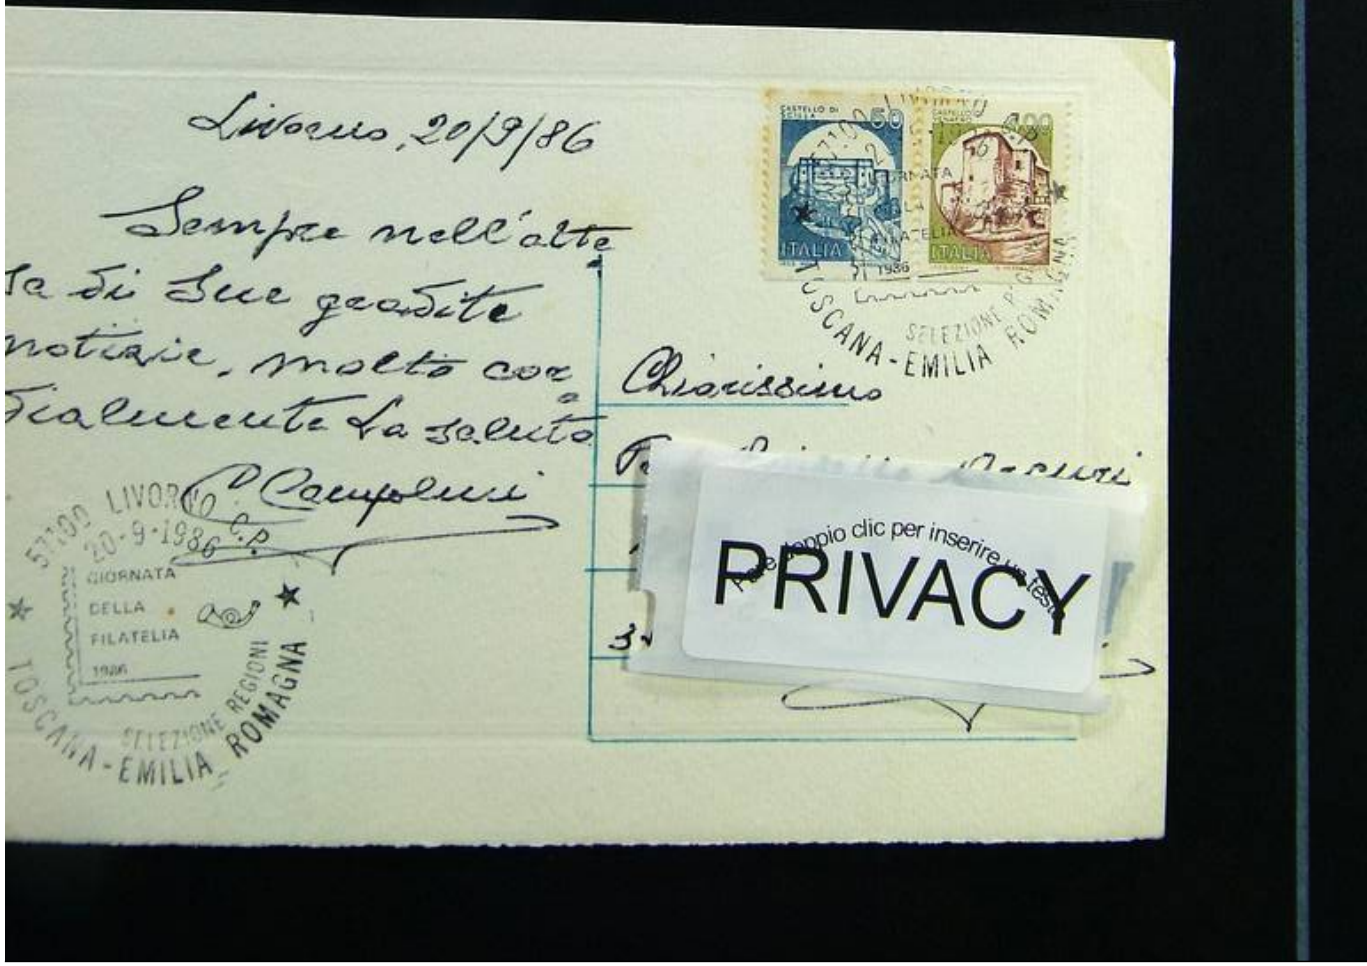 Livorno, 20/9/86
Sempre nell'atte
sa di Sue gradite
notizie, molto cor
dialmente La saluto
Campolmi
57100 LIVORNO C.P.
20-9-1986
GIORNATA
DELLA
FILATELIA
1986
SELEZIONE REGIONI
TOSCANA-EMILIA ROMAGNA
CASTELLO DI
SCILLA
50
ITALIA
CASTELLO
400
ITALIA
57100 LIVORNO
GIORNATA
FILATELIA
1986
SELEZIONE
TOSCANA-EMILIA ROMAGNA
Chiarissimo
doppio clic per inserire un testo
PRIVACY